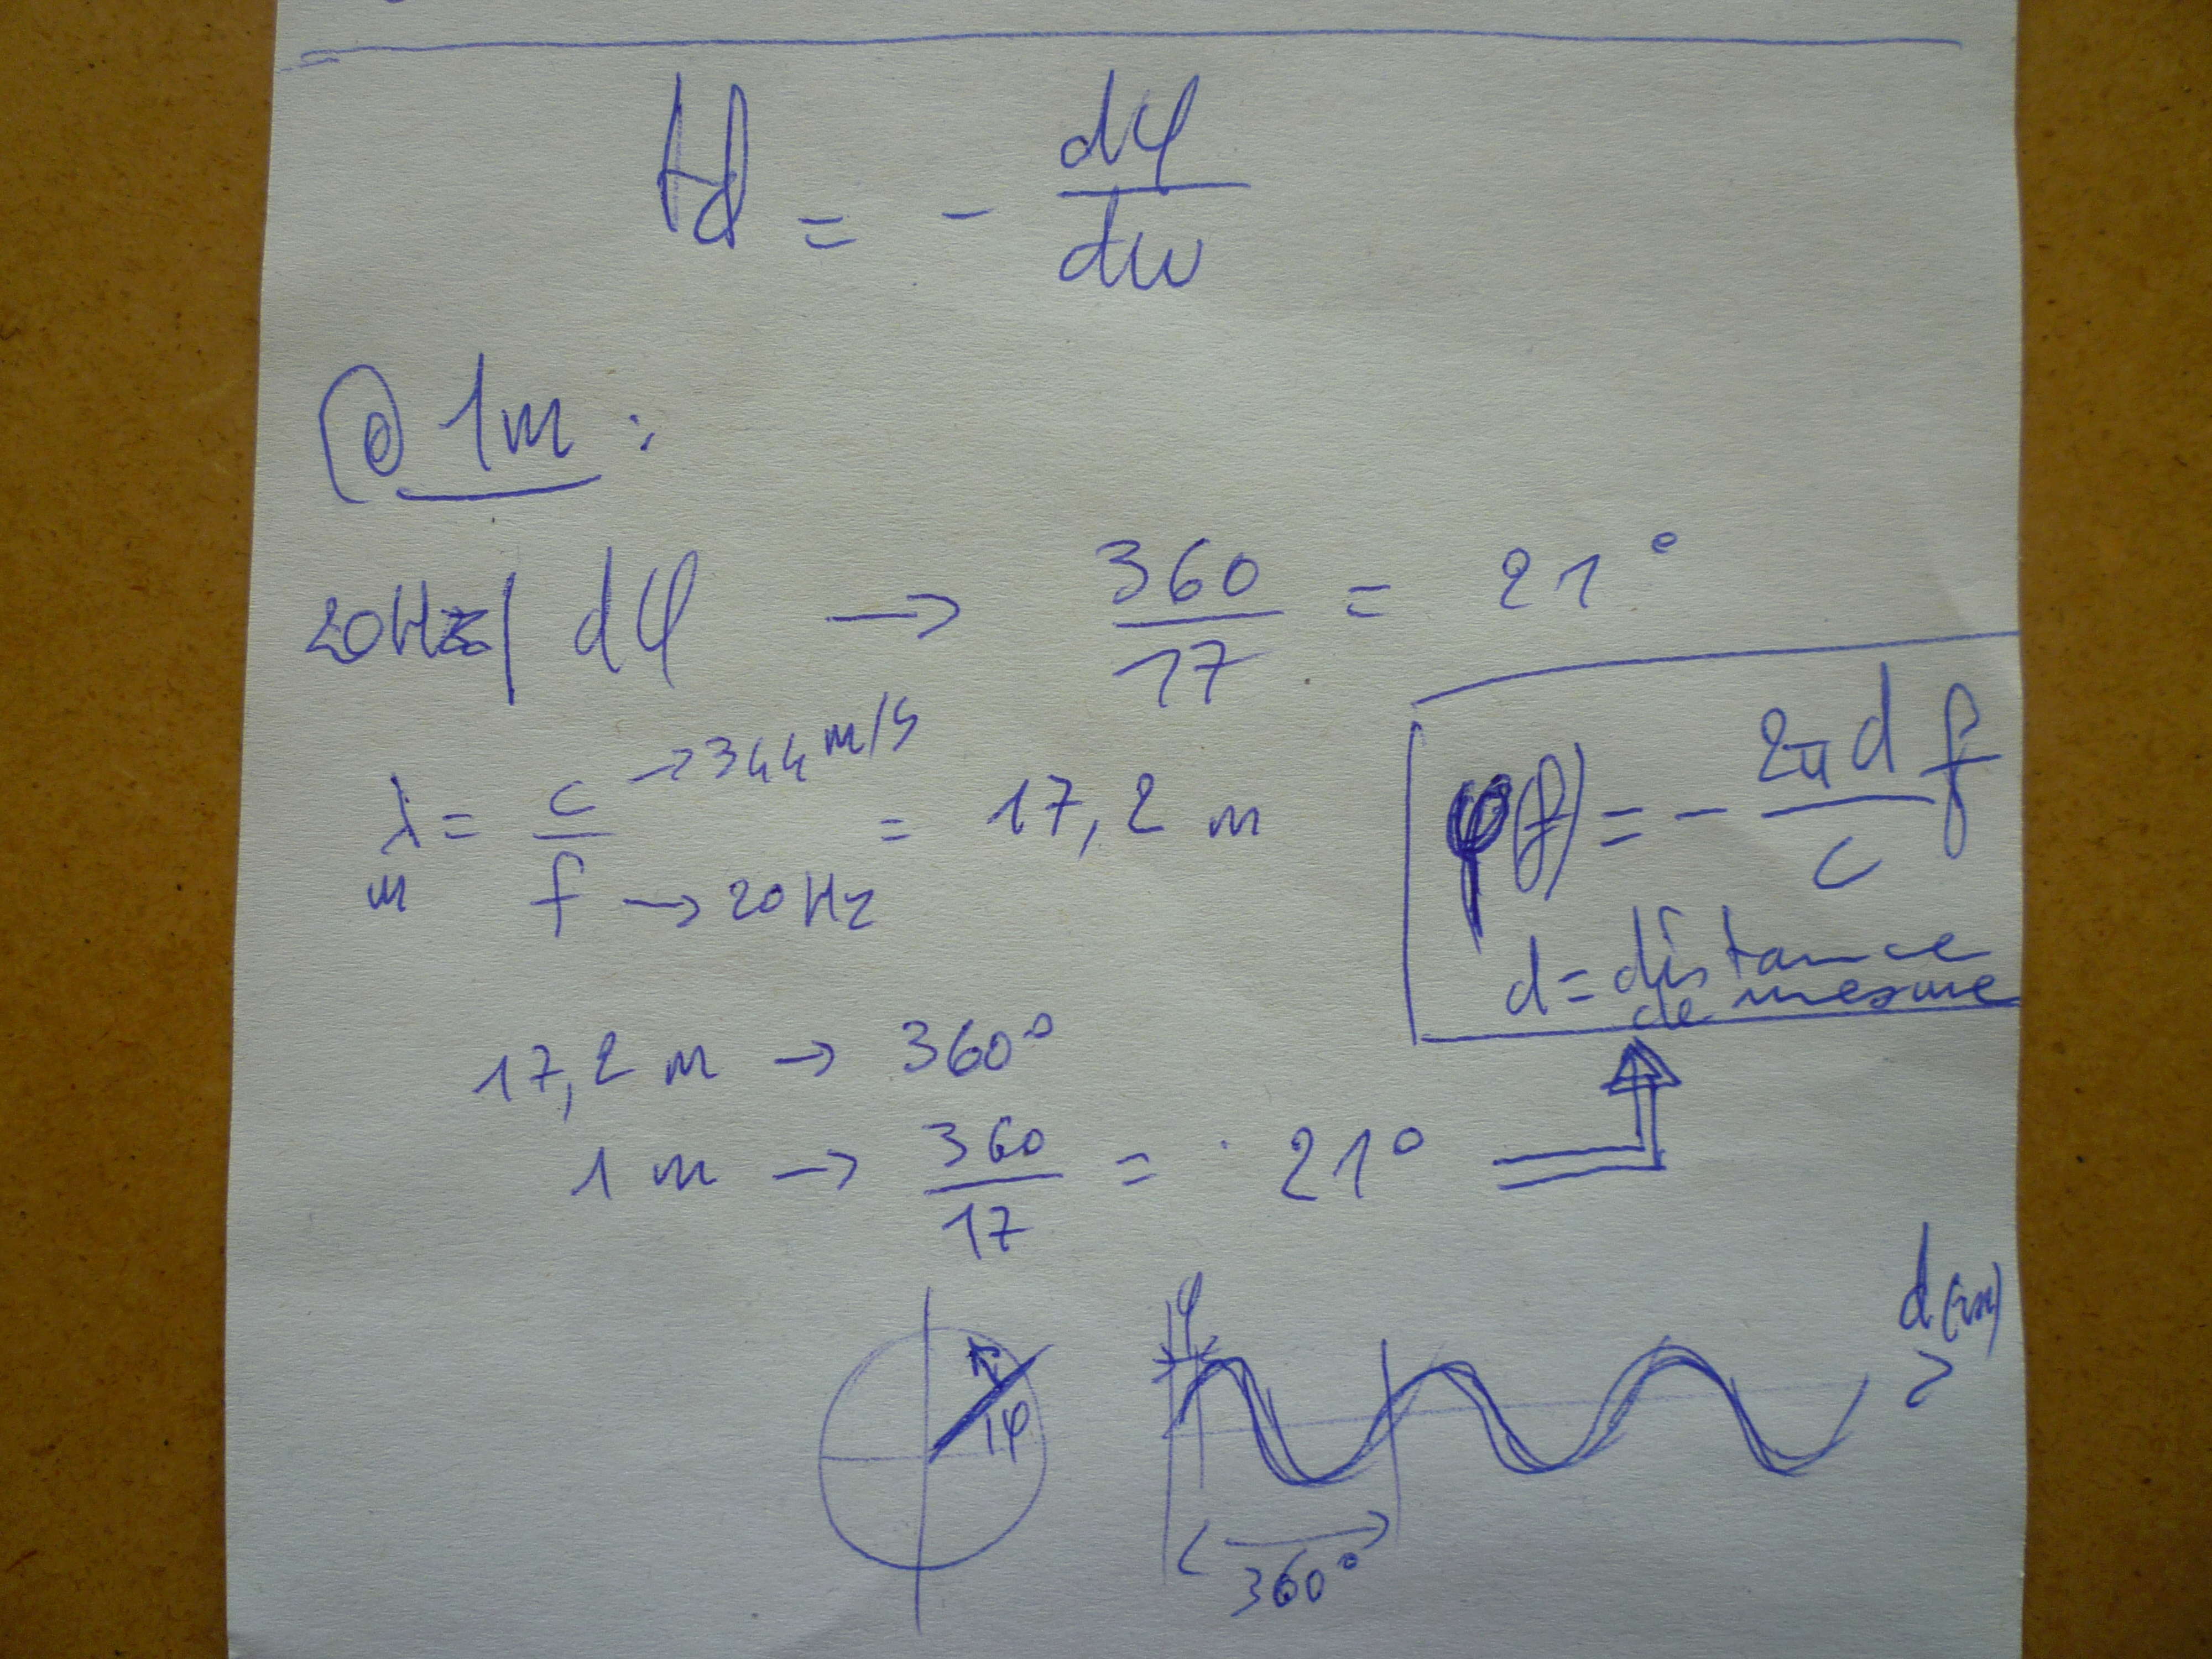 td = - dφ/dω
@ 1m :
20Hz | dφ → 360/17 = 21°
λ = c/f = 17,2 m
m
c → 344 m/s
f → 20 Hz
φ(f) = - 2π d f / c
d = distance
de mesure
17,2 m → 360°
1 m → 360/17 = 21°
φ
d (m)
φ
360°